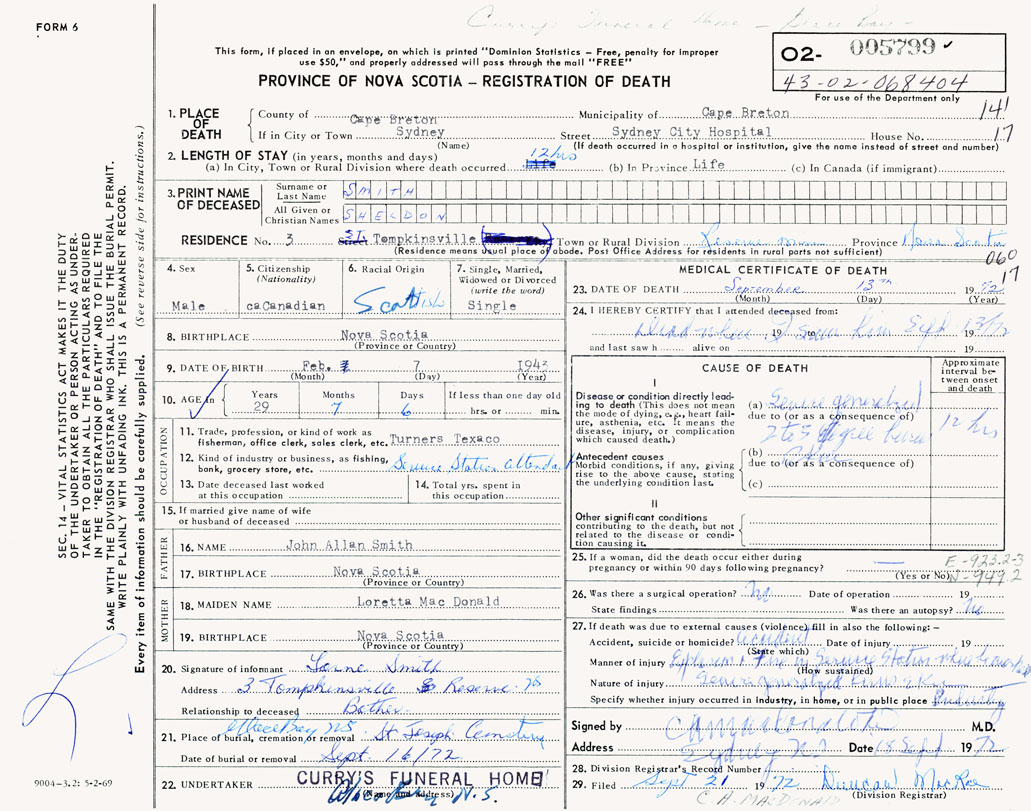 FORM 6
Curry's Funeral Home - Glace Bay -
This form, if placed in an envelope, on which is printed "Dominion Statistics – Free, penalty for improper
use $50," and properly addressed will pass through the mail "FREE"
PROVINCE OF NOVA SCOTIA – REGISTRATION OF DEATH
O2- 005799
43-02-068404
For use of the Department only
141
17
1. PLACE OF DEATH
County of Cape Breton Municipality of Cape Breton
If in City or Town Sydney Street Sydney City Hospital House No.
(Name) (If death occurred in a hospital or institution, give the name instead of street and number)
2. LENGTH OF STAY (in years, months and days)
12 hrs
(a) In City, Town or Rural Division where death occurred Life (b) In Province Life (c) In Canada (if immigrant)
3. PRINT NAME OF DECEASED
Surname or Last Name SMITH
All Given or Christian Names SHELDON
RESIDENCE No. 3 Street Tompkinsville Town or Rural Division Reserve Mines Province Nova Scotia
(Residence means usual place of abode. Post Office Address for residents in rural parts not sufficient)
060
17
4. Sex
Male
5. Citizenship
(Nationality)
caCanadian
6. Racial Origin
Scottish
7. Single, Married,
Widowed or Divorced
(write the word)
Single
8. BIRTHPLACE Nova Scotia
(Province or Country)
9. DATE OF BIRTH Feb. 7 1943
(Month) (Day) (Year)
10. AGE in
Years 29
Months 7
Days 6
If less than one day old
hrs. or min.
OCCUPATION
11. Trade, profession or kind of work as
fisherman, office clerk, sales clerk, etc. Turners Texaco
12. Kind of industry or business, as fishing,
bank, grocery store, etc. Service Station attendant
13. Date deceased last worked
at this occupation
14. Total yrs. spent in
this occupation
15. If married give name of wife
or husband of deceased
FATHER
16. NAME John Allan Smith
17. BIRTHPLACE Nova Scotia
(Province or Country)
MOTHER
18. MAIDEN NAME Loretta Mac Donald
19. BIRTHPLACE Nova Scotia
(Province or Country)
20. Signature of informant Lorne Smith
Address 3 Tompkinsville Reserve NS
Relationship to deceased Bother
Glace Bay NS
21. Place of burial, cremation or removal St Joseph Cemetery
Date of burial or removal Sept. 16/72
22. UNDERTAKER CURRY'S FUNERAL HOME
(Name and address)
Glace Bay N.S.
MEDICAL CERTIFICATE OF DEATH
23. DATE OF DEATH September 13th 1972
(Month) (Day) (Year)
24. I HEREBY CERTIFY that I attended deceased from:
Dead when I saw him Sept 13/72
19 to 19
and last saw h alive on 19
CAUSE OF DEATH
Approximate
interval be-
tween onset
and death
I
Disease or condition directly lead-
ing to death (This does not mean
the mode of dying, e.g., heart fail-
ure, asthenia, etc. It means the
disease, injury, or complication
which caused death.)
(a) Severe generalized
due to (or as a consequence of)
2 to 3 degree burns
12 hrs
Antecedent causes
Morbid conditions, if any, giving
rise to the above cause, stating
the underlying condition last.
(b)
due to (or as a consequence of)
(c)
II
Other significant conditions
contributing to the death, but not
related to the disease or condi-
tion causing it.
25. If a woman, did the death occur either during
pregnancy or within 90 days following pregnancy?
(Yes or No)
E-923.2-3
N-949.2
26. Was there a surgical operation? No Date of operation 19
State findings Was there an autopsy? No
27. If death was due to external causes (violence) fill in also the following: –
Accident, suicide or homicide? Accident Date of injury 19
(State which)
Manner of injury Explosion & Fire in Service Station where he worked
(How sustained)
Nature of injury Severe generalized burns
Specify whether injury occurred in industry, in home, or in public place Industry
Signed by M.D.
Address Sydney NS Date 18 Sept 1972
28. Division Registrar's Record Number
29. Filed Sept 21 1972 Duncan MacRae
(Division Registrar)
C. H. MACDONALD
SEC. 14 – VITAL STATISTICS ACT MAKES IT THE DUTY
OF THE UNDERTAKER OR PERSON ACTING AS UNDER-
TAKER TO OBTAIN ALL THE PARTICULARS REQUIRED
IN THE "REGISTRATION OF DEATH" AND FILE THE
SAME WITH THE DIVISION REGISTRAR WHO SHALL ISSUE THE BURIAL PERMIT.
WRITE PLAINLY WITH UNFADING INK. THIS IS A PERMANENT RECORD.
Every item of information should be carefully supplied. (See reverse side for instructions.)
9004–3.2: 5-2-69